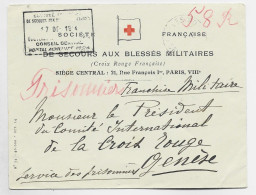 58 R
SOCIÉTÉ FRANÇAISE
DE SECOURS AUX BLESSÉS MILITAIRES
(Croix Rouge Française)
SIÈGE CENTRAL : 21, Rue François Iᵉʳ, PARIS, VIIIᵉ
Prisonnier Franchise Militaire
Monsieur le Président
du Comité International
de la Croix Rouge
Genève
Service des prisonniers